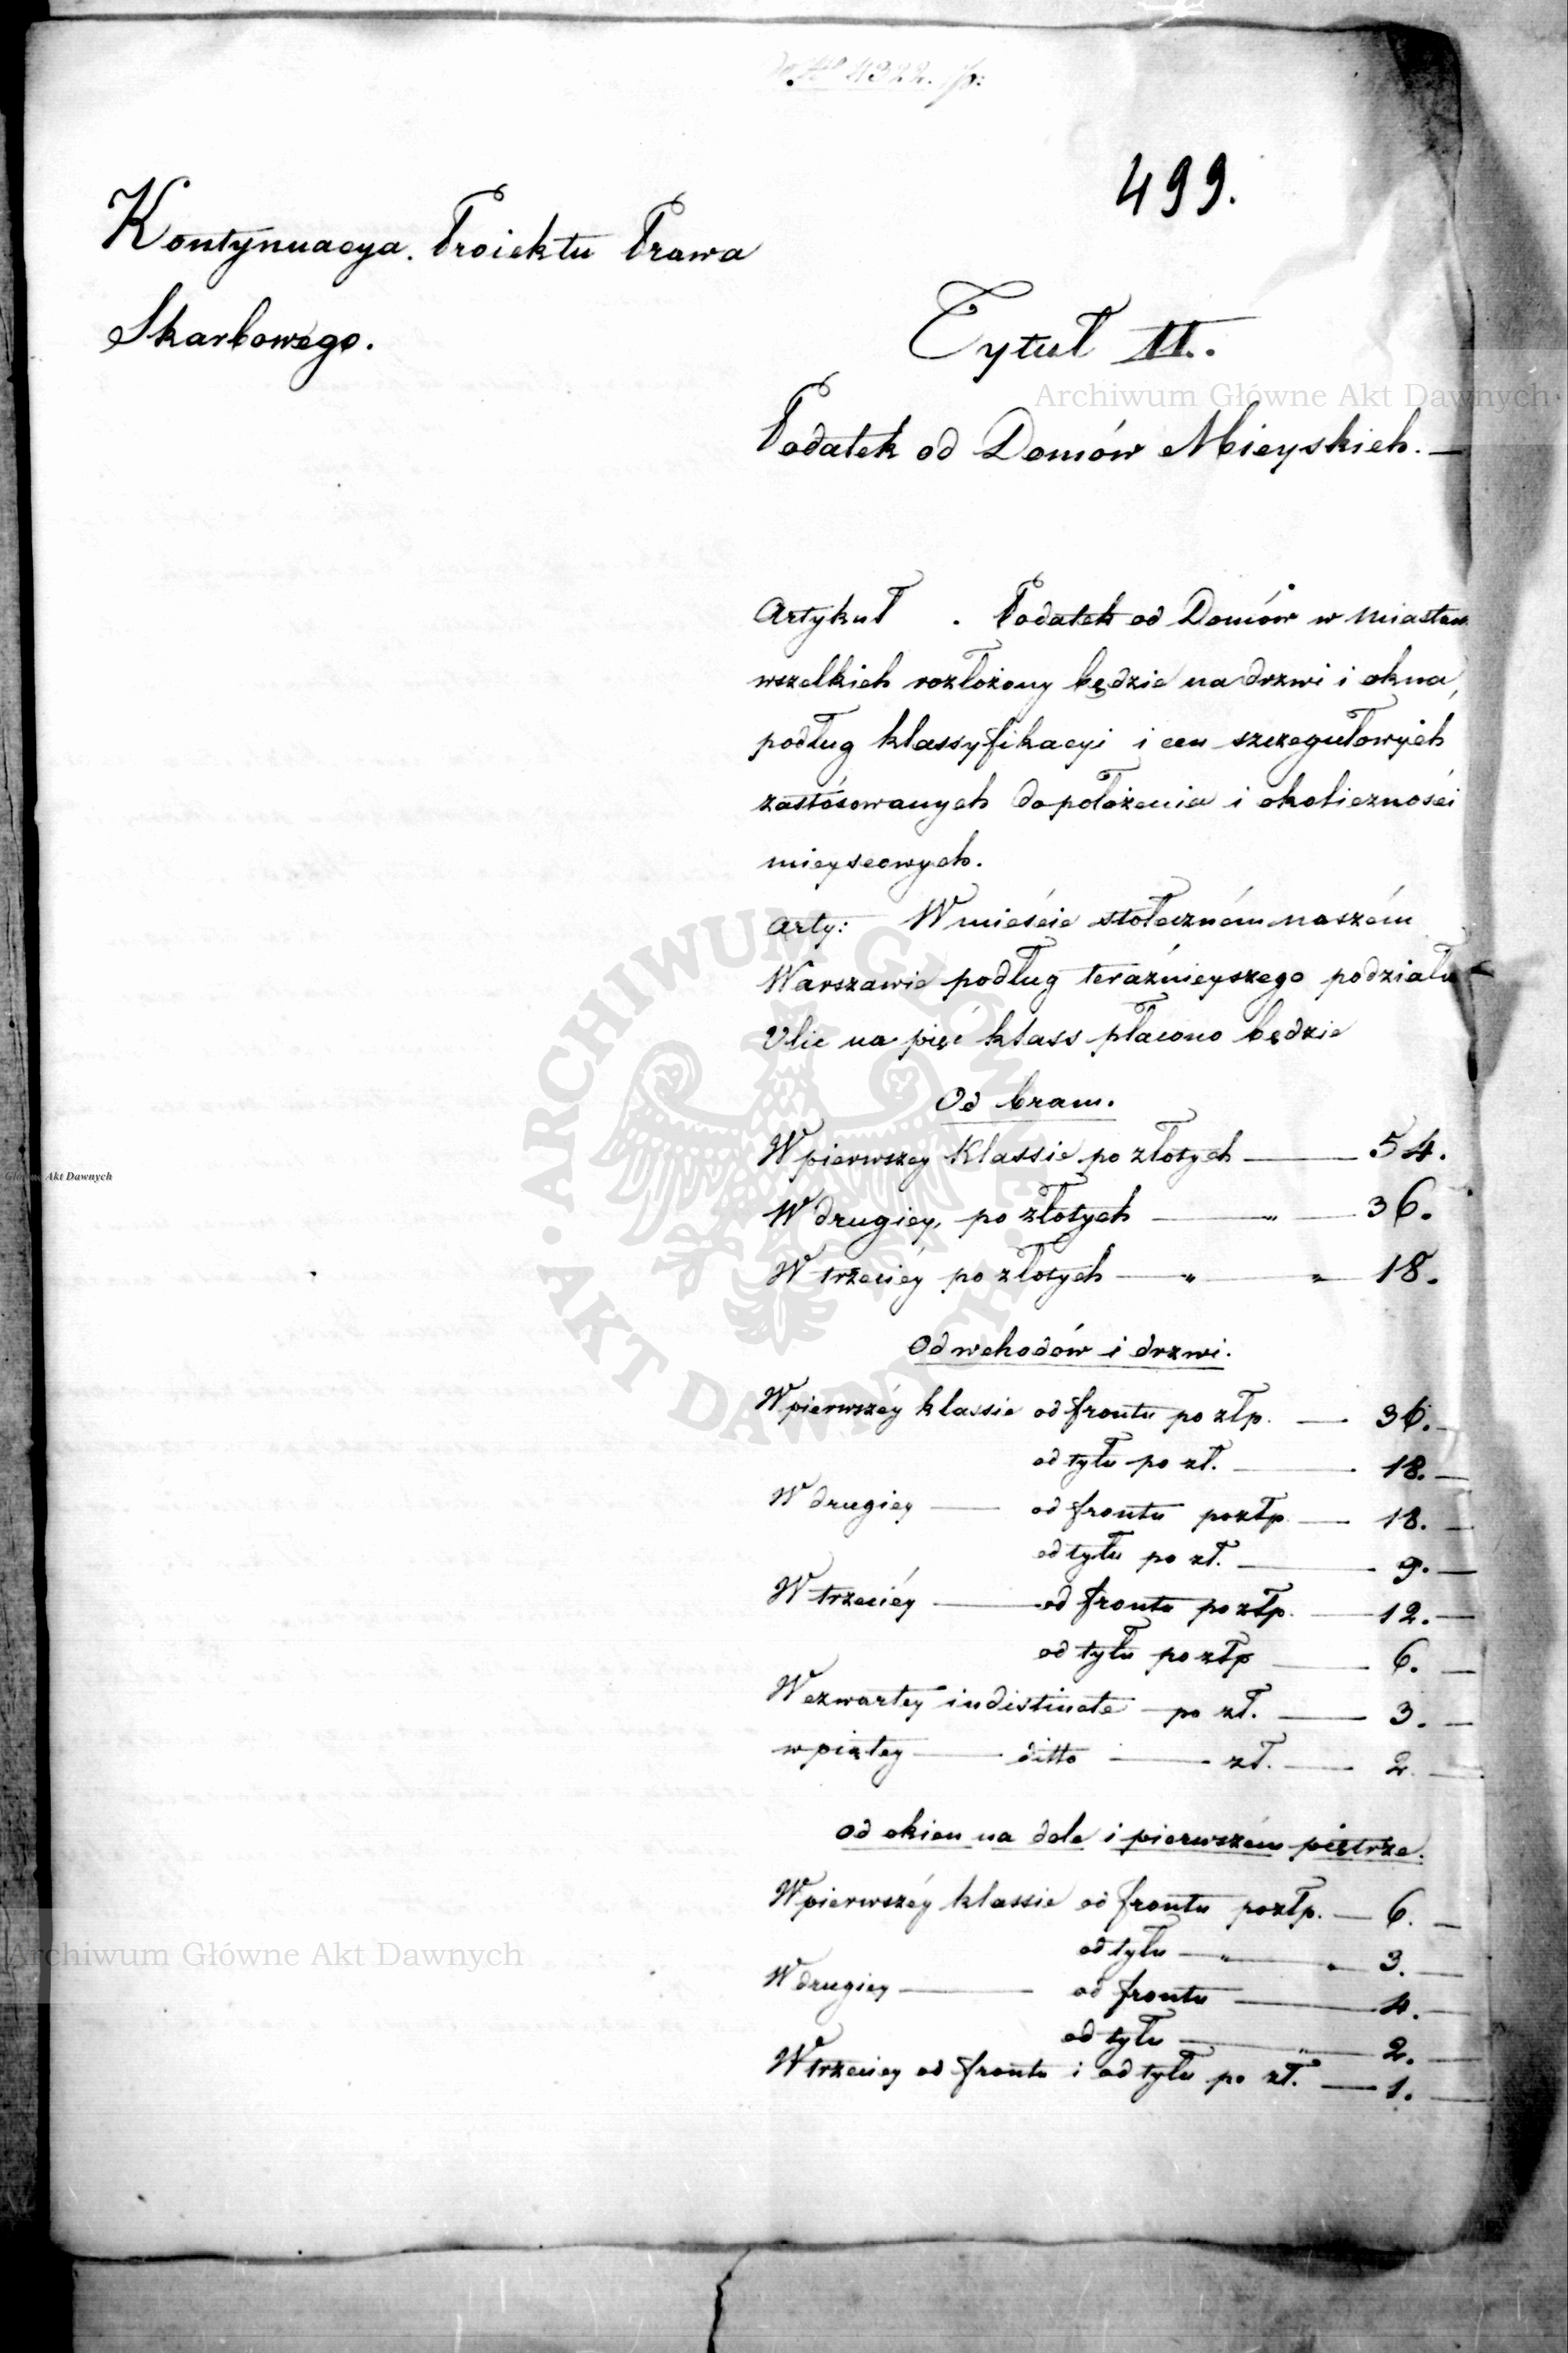 499.
Kontynuacya Proiektu Prawa
Skarbowego.
Tytuł II.
Podatek od Domów Mieyskich. —
Artykuł . Podatek od Domów w Miastach
wszelkich rozłożony będzie na drzwi i okna,
podług klassyfikacyi i cen szczegułowych
zastósowanych do położenia i okoliczności
mieyscowych.
Arty: W mieście stołeczném naszém
Warszawie podług teraźnieyszego podziału
Ulic na pięć klass płacono będzie
Od bram.
W pierwszey Klassie po złotych — 54.
W drugiey, po złotych — " — 36.
W trzeciéy po złotych — " — " 18.
Od wchodów i drzwi.
W pierwszéy klassie od frontu po złp. — 36. —
od tyłu po zł. — 18. —
W drugiey — od frontu po złp — 18. —
od tyłu po zł. — 9. —
W trzeciéy — od frontu po złp. — 12. —
od tyłu po złp — 6. —
W czwartey indistincte — po zł. — 3. —
w piątey — ditto — zł. — 2. —
Od okien na dole i pierwszém piętrze.
W pierwszéy klassie od frontu po złp. — 6. —
od tyłu — " — " 3. —
W drugiey — od frontu — 4. —
od tyłu — " — 2. —
W trzeciey od frontu i od tyłu po zł. — 1. —
Archiwum Główne Akt Dawnych
Główne Akt Dawnych
· ARCHIWUM GŁÓWNE · AKT DAWNYCH
Archiwum Główne Akt Dawnych